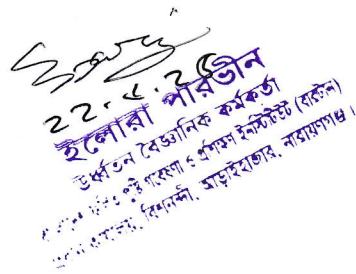 22.5.25
ইলোরা পারভীন
ঊর্ধ্বতন বৈজ্ঞানিক কর্মকর্তা
পুষ্টি গবেষণা ও প্রশিক্ষণ ইনস্টিটিউট (বারটান)
বিশনন্দী, আড়াইহাজার, নারায়ণগঞ্জ।